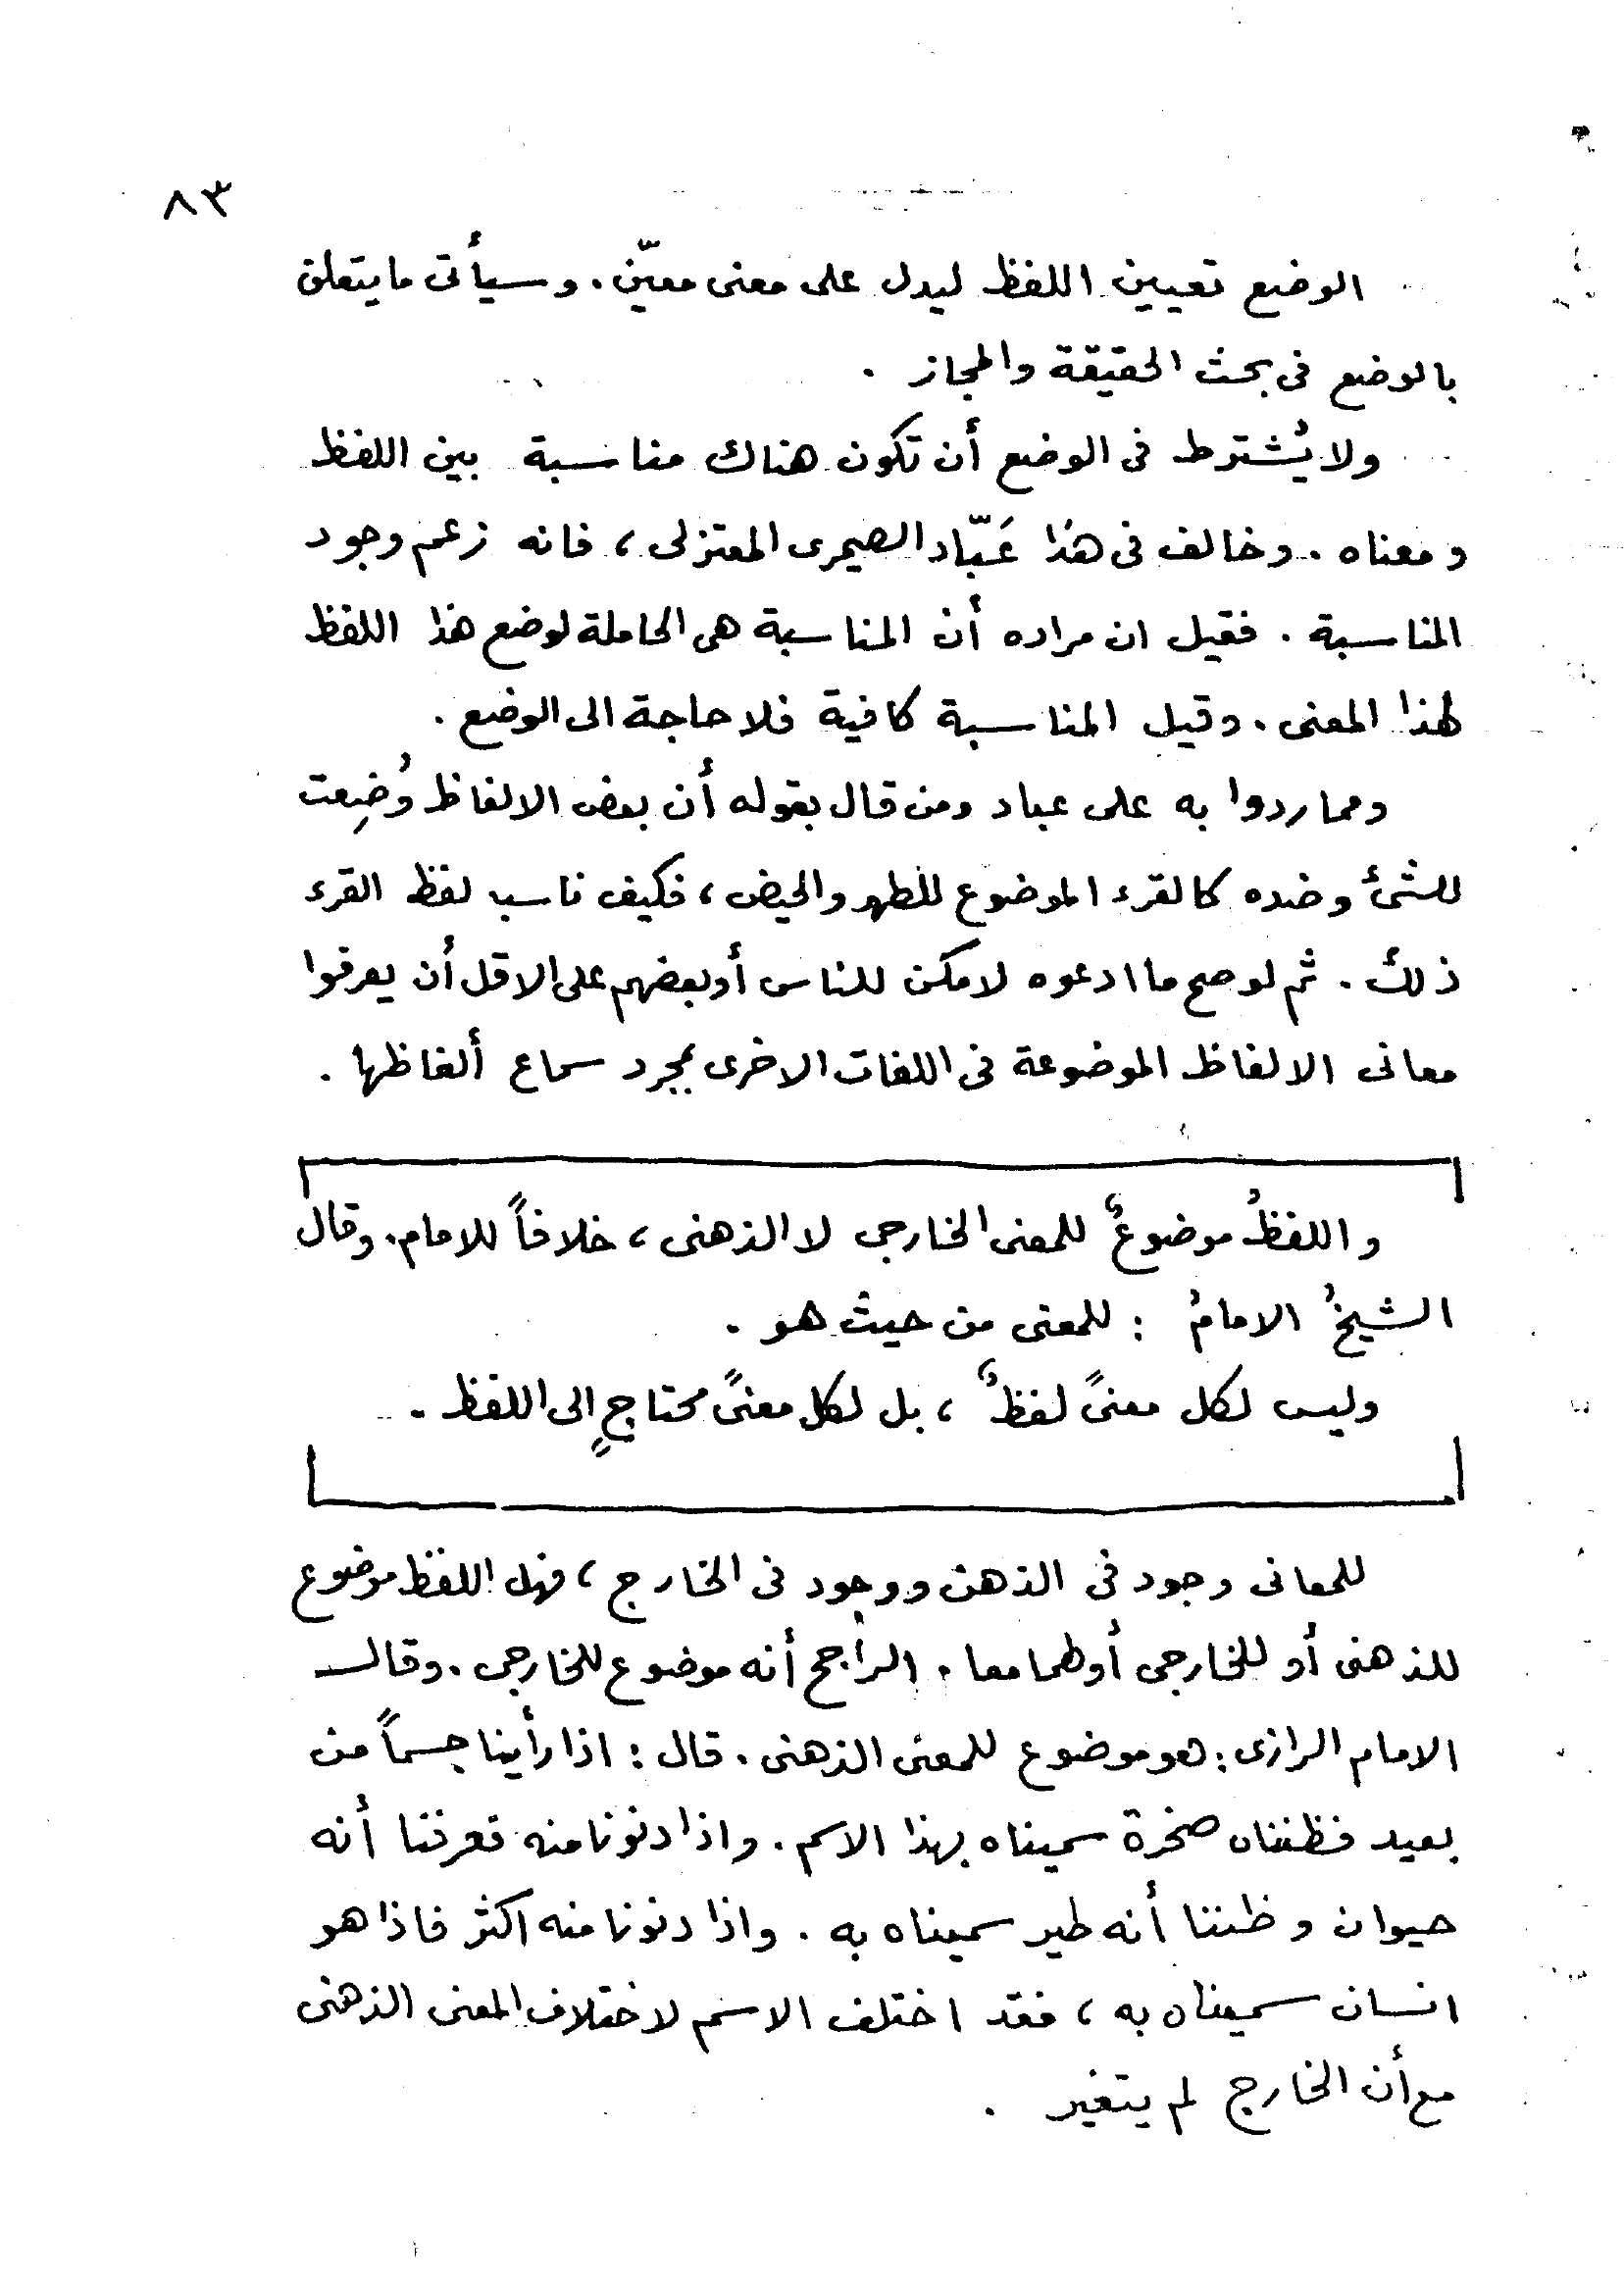 ٨٣
الوضع تعيين اللفظ ليدل على معنى معيّن . وسيأتى ما يتعلق
بالوضع فى بحث الحقيقة والمجاز .
ولا يُشترط فى الوضع أن تكون هناك مناسبة بين اللفظ
ومعناه . وخالف فى هذا عَبّاد الصيمرى المعتزلى ، فانه زعم وجود
المناسبة . فقيل ان مراده أن المناسبة هى الحاملة لوضع هذا اللفظ
لهذا المعنى . وقيل المناسبة كافية فلا حاجة الى الوضع .
ومما ردوا به على عباد ومن قال بقوله أن بعض الالفاظ وُضِعت
للشئ وضده كالقرء الموضوع للطهر والحيض ، فكيف ناسب لفظ القرء
ذلك . ثم لو صح ما ادعوه لامكن للناس أو بعضهم على الاقل أن يعرفوا
معانى الالفاظ الموضوعة فى اللغات الاخرى بمجرد سماع ألفاظها .
واللفظُ موضوعٌ للمعنى الخارجى لا الذهنى ، خلافاً للامام . وقال
الشيخُ الامامُ : للمعنى من حيث هو .
وليس لكل معنىً لفظٌ ، بل لكل معنىً محتاجٍ الى اللفظ .
للمعانى وجود فى الذهن ووجود فى الخارج ، فهل اللفظ موضوع
للذهنى أو للخارجى أو لهما معا . الراجح أنه موضوع للخارجى . وقال
الامام الرازى : هو موضوع للمعنى الذهنى . قال : اذا رأينا جسماً من
بعيد فظنناه صخرة سميناه بهذا الاسم . واذا دنونا منه فعرفنا أنه
حيوان وظننا أنه طير سميناه به . واذا دنونا منه اكثر فاذا هو
انسان سميناه به ، فقد اختلف الاسم لاختلاف المعنى الذهنى
مع أن الخارج لم يتغير .